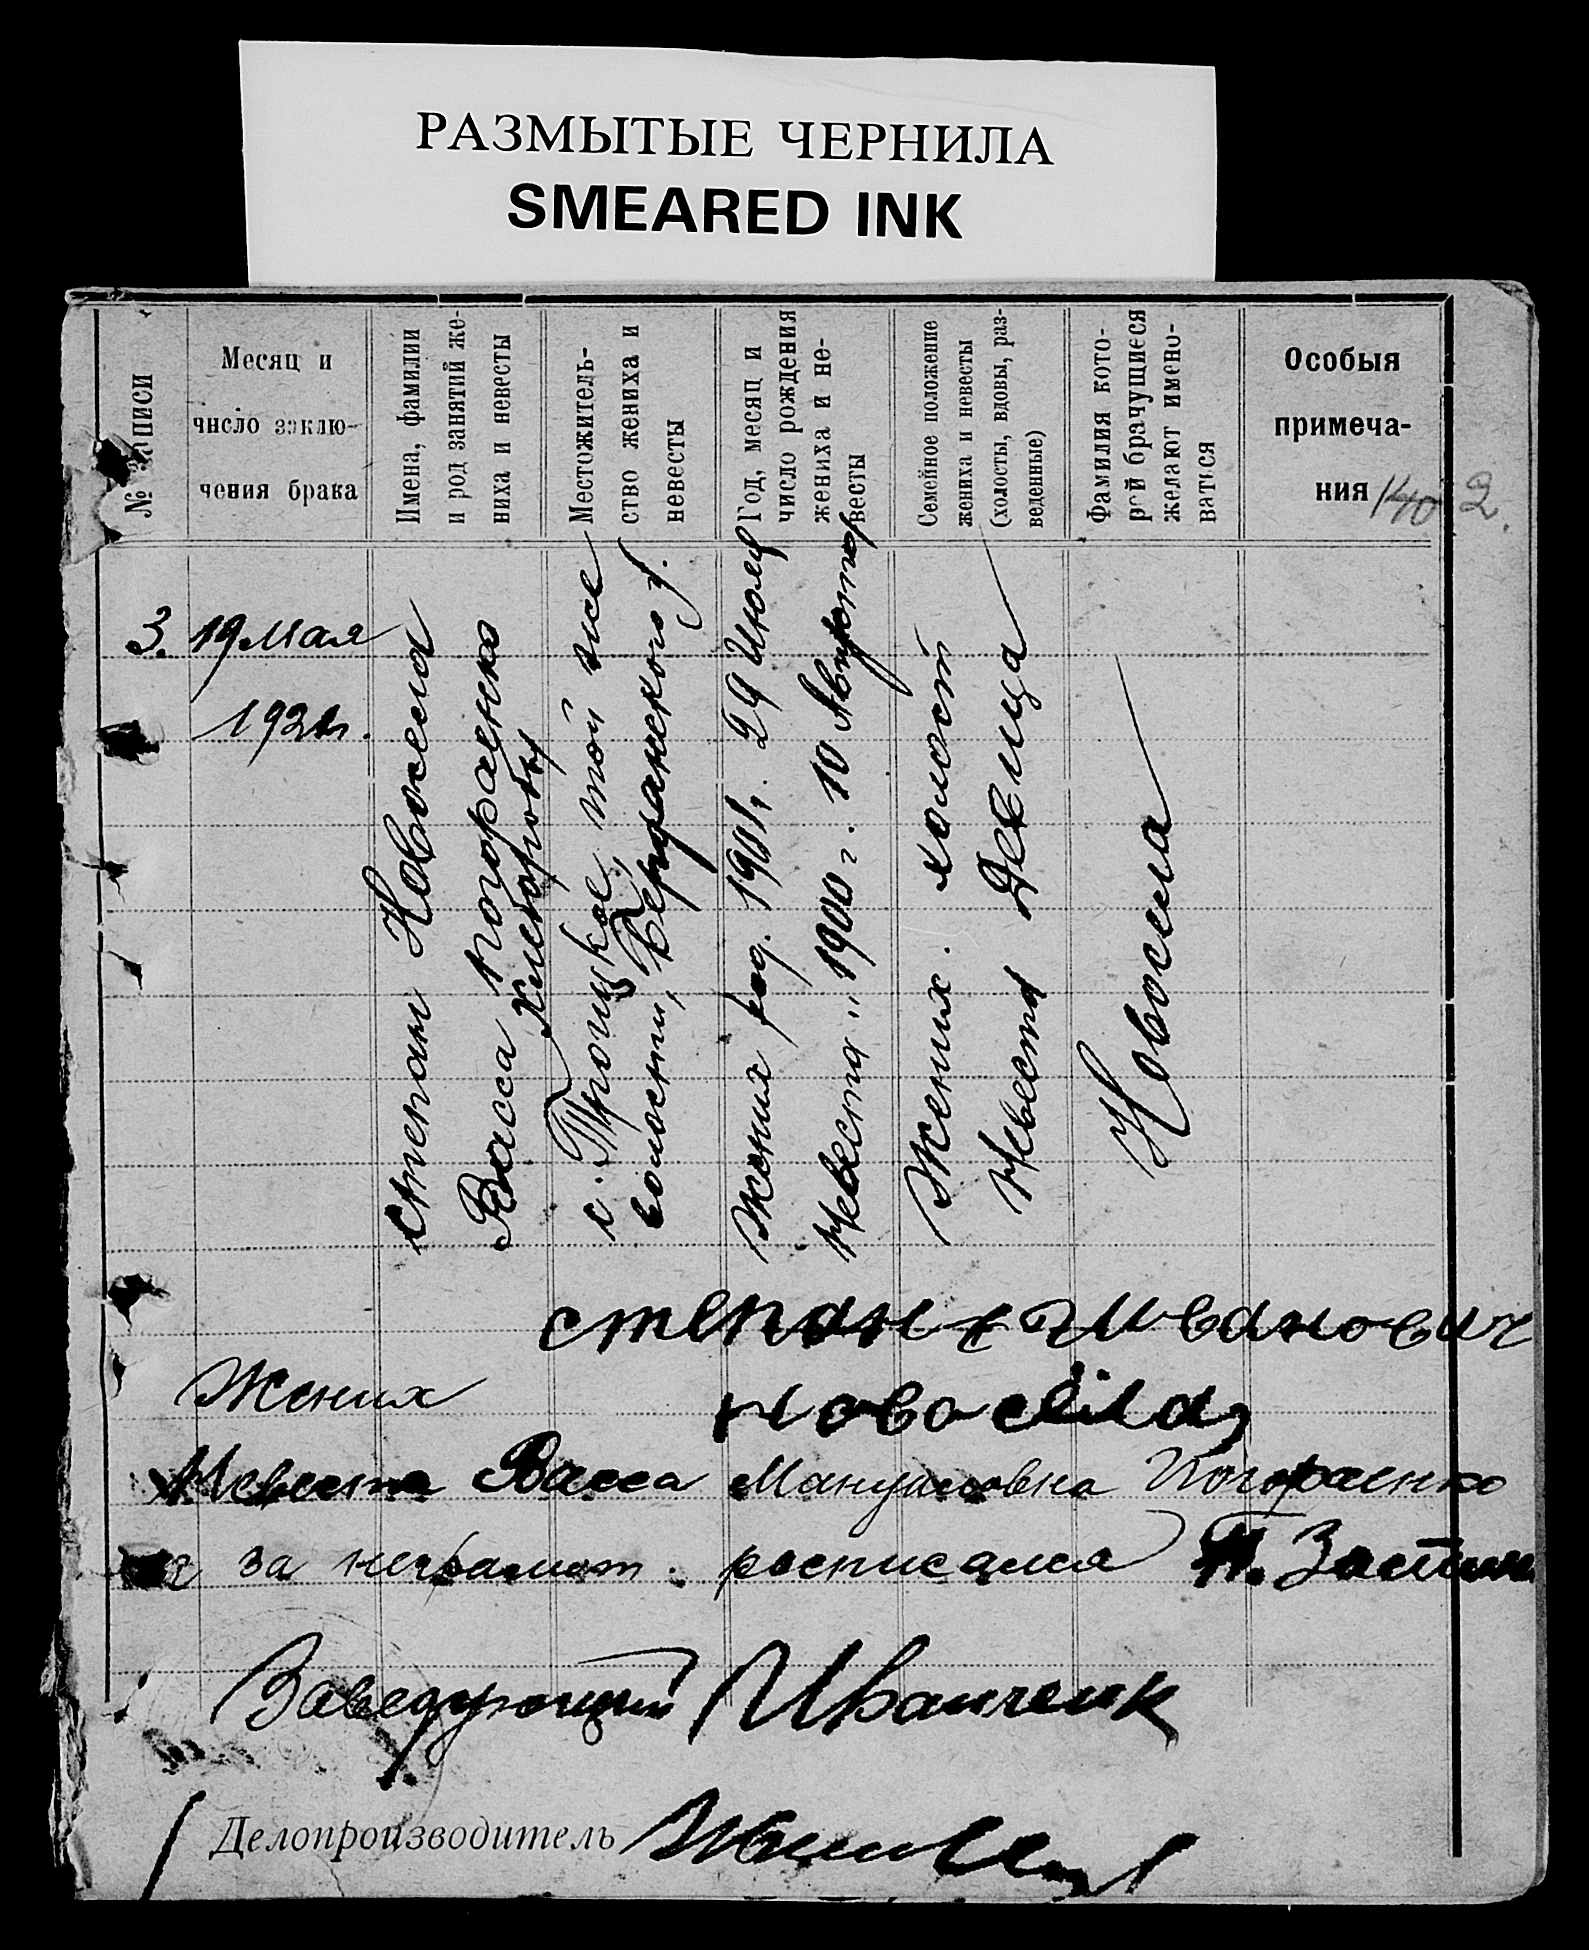 РАЗМЫТЫЕ ЧЕРНИЛА
SMEARED INK
№ записи
Месяц и
число заклю-
чения брака
Имена, фамилии
и род занятий же-
ниха и невесты
Местожитель-
ство жениха и
невесты
Год, месяц и
число рождения
жениха и не-
весты
Семейное положение
жениха и невесты
(холосты, вдовы, раз-
веденные)
Фамилия кото-
рой брачущиеся
желают имено-
ваться
Особыя
примеча-
ния
140 2.
3.
19 Мая
1921г.
Степан Новосела
Васса Погораенко
Хлеборобы
с. Троицкое, той же
волости, Бердянского у.
Жених род. 1901г. 29 Июля
Невеста " 1900 г. 10 Августа
Жених. холост
Невеста Девица
Новосела
степан Иванович
Жених новосёла
Невеста Васса Мануиловна Погораенко
за неграмот. росписался П.
Заведующий Иванченк
Делопроизводитель